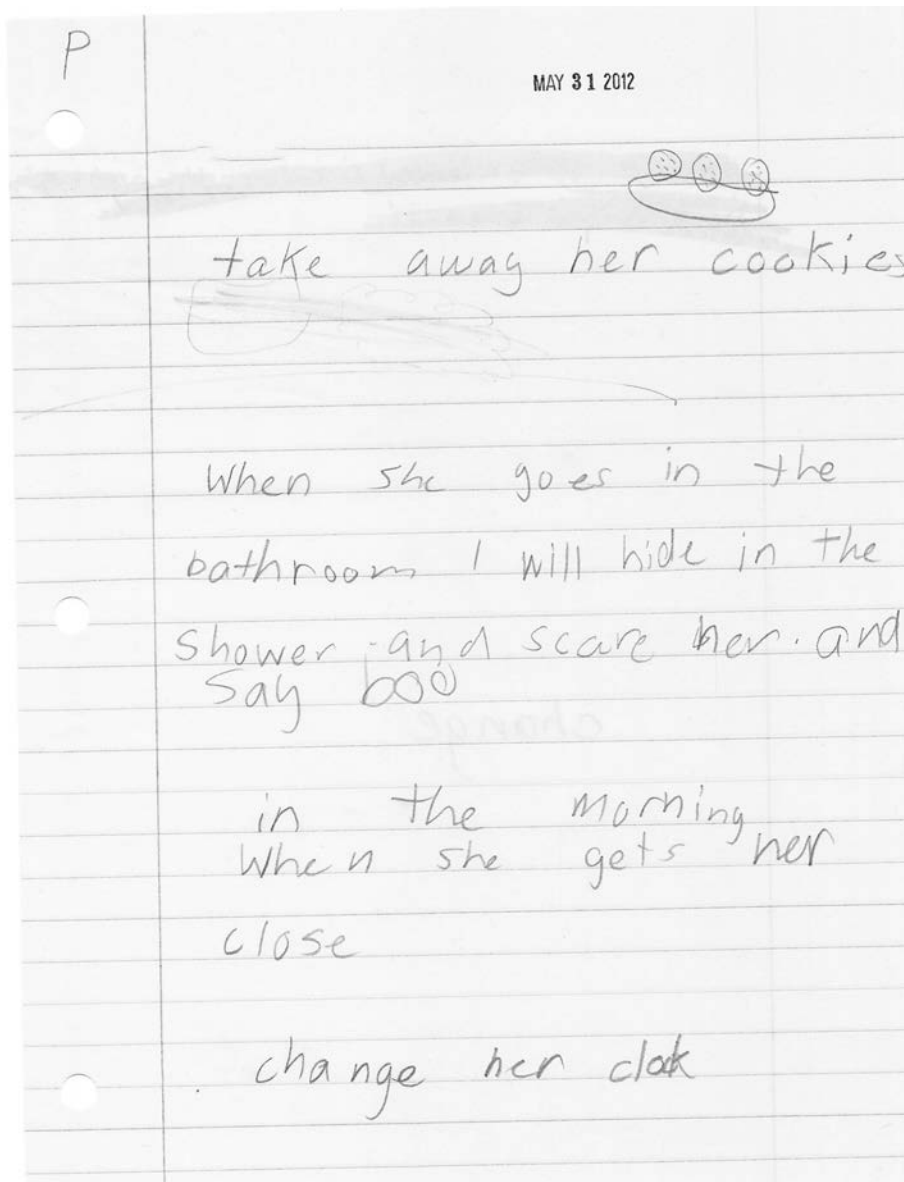 P
MAY 31 2012
take away her cookies
When she goes in the
bathroom I will hide in the
shower and scare her. and
Say boo
in the morning
When she gets her
close
change her clok